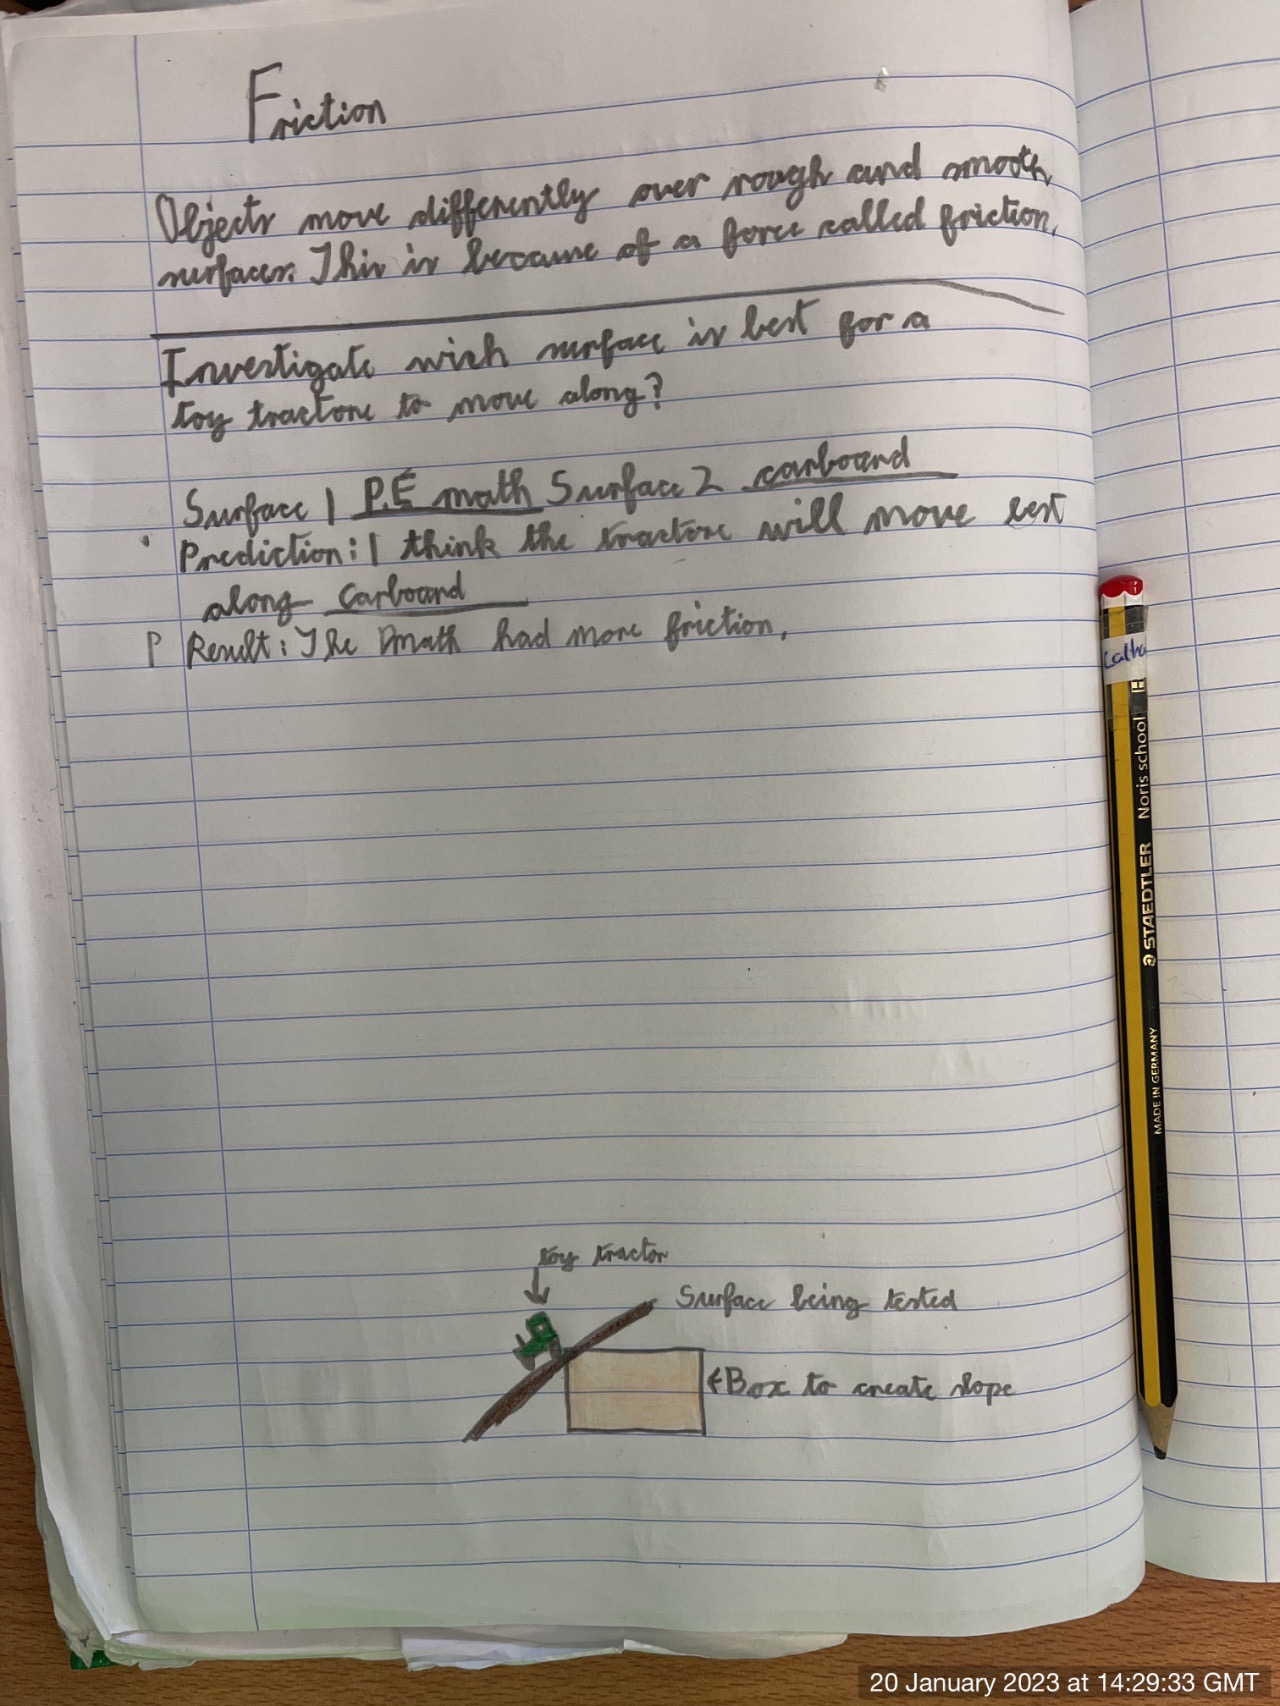 Friction
Objects move differently over rough and smooth
surfaces. This is because of a force called friction.
Investigate wich surface is best for a
toy tractore to move along?
Surface 1 P.E math Surface 2 carboard
Prediction: I think the tractore will move best
along carboard
P Result: The math had more friction.
toy tractor
Surface being tested
Box to create slope
Calh
STAEDTLER Noris school H
MADE IN GERMANY
20 January 2023 at 14:29:33 GMT